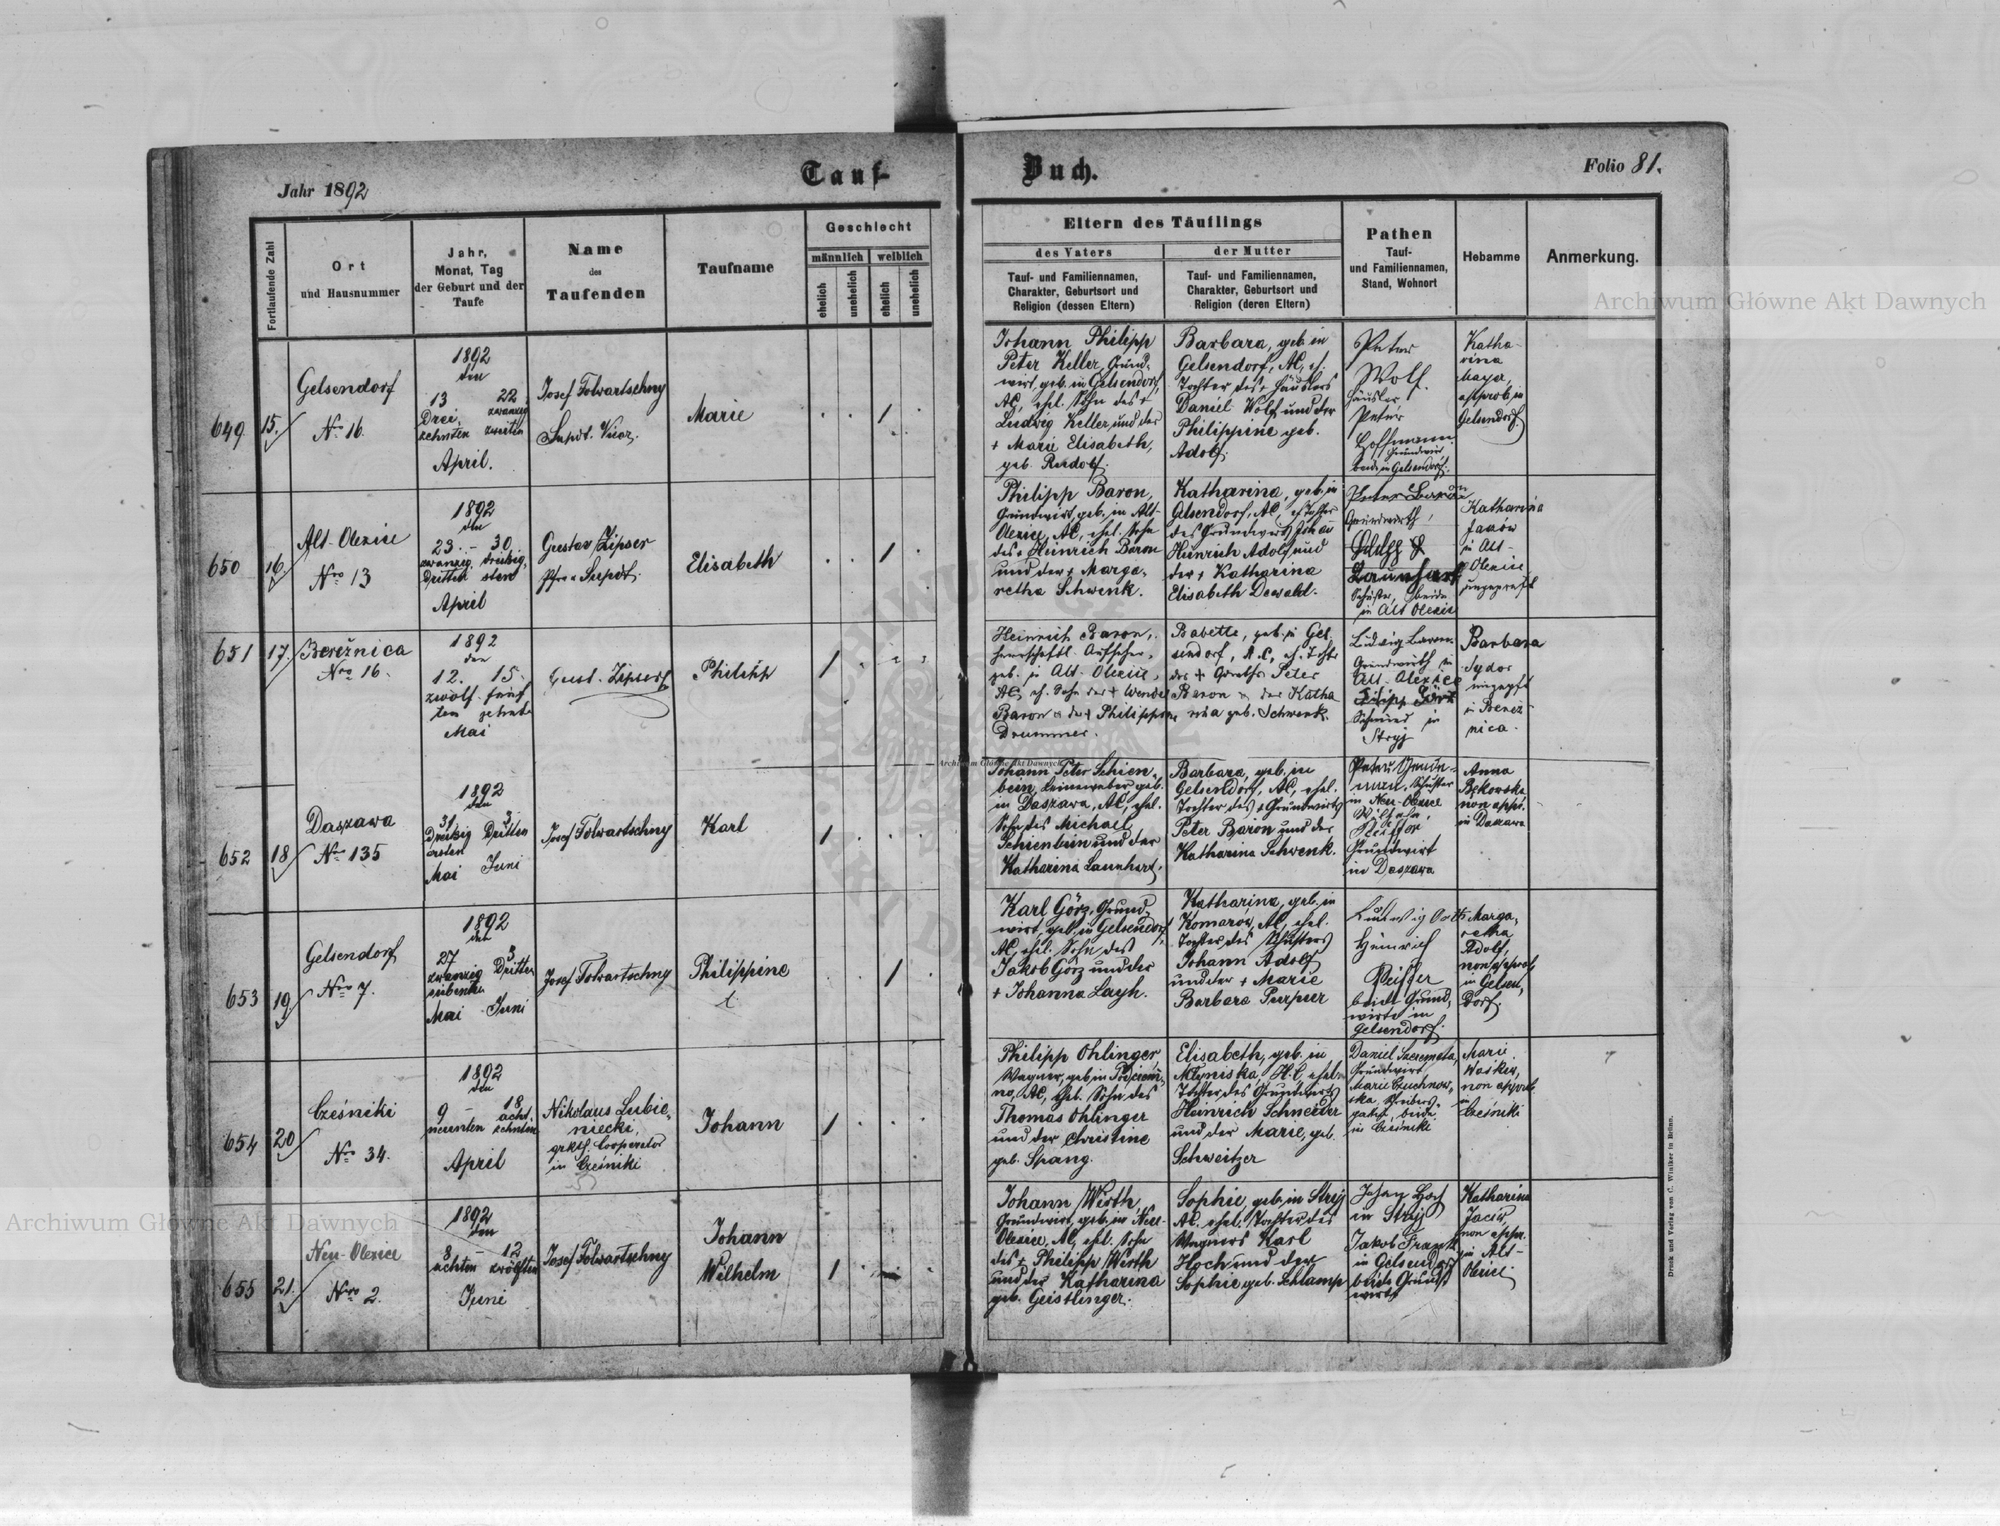 Jahr 1892
Tauf-
Buch.
Folio 81.
Fortlaufende Zahl
Ort
und Hausnummer
Jahr,
Monat, Tag
der Geburt und der
Taufe
Name
des
Taufenden
Taufname
Geschlecht
männlich
weiblich
ehelich
unehelich
ehelich
unehelich
Eltern des Täuflings
des Vaters
Tauf- und Familiennamen,
Charakter, Geburtsort und
Religion (dessen Eltern)
der Mutter
Tauf- und Familiennamen,
Charakter, Geburtsort und
Religion (deren Eltern)
Pathen
Tauf-
und Familiennamen,
Stand, Wohnort
Hebamme
Anmerkung.
649 15.
Gelsendorf
Nro 16.
1892
den
13 22
Drei- zwanzig
zehnten zweiten
April.
Josef Folwartschny
Supdt. Vicar.
Marie
1
Johann Philipp
Peter Keller, Grund-
wirt, geb. in Gelsendorf,
AC, ehel. Sohn des +
Ludwig Keller, und der
+ Marie Elisabeth,
geb. Rudolf.
Barbara, geb. in
Gelsendorf, AC, eh.
Tochter des + Häuslers
Daniel Wolf und der
Philippine geb.
Adolf.
Peter
Wolf.
Häusler
Peter
Hoffmann
Grundwirt
beide in Gelsendorf.
Katha-
rina
Mayer,
approb. in
Gelsendorf.
650 16
Alt-Olexice
Nro 13
1892
den
23. - 30.
zwanzig dreißig-
dritten sten
April
Gustav Zipser
Pfr. u. Supdt.
Elisabeth
1
Philipp Baron,
Grundwirt, geb. in Alt-
Olexice, AC, ehel. Sohn
des + Heinrich Baron
und der + Marga-
retha Schwenk.
Katharina, geb. in
Gelsendorf, AC, eh. Tochter
des Grundwirts Johan
Heinrich Adolf und
der + Katharina
Elisabeth Dewald.
Peter Baron
Grundwirth,
Launhart
Schuster, beide
in Alt Olexice
Katharina
in Alt-
Olexice
ungeprüft
651 17.
Berežnica
Nro 16.
1892
den
12. 15.
zwölf- fünf
ten zehnten
Mai
Gust. Zipser
Philipp
1
Heinrich Baron,
herrschaftl. Aufseher,
geb. in Alt-Olexice,
AC, eh. Sohn des + Wendel
Baron u. der + Philippine
Drummer.
Babette, geb. in Gel-
sendorf, A.C, eh. Tochter
des + Grundw. Peter
Baron u. der Katha
rina geb. Schwenk.
Ludwig Baron
Grundwirth in
Alt-Olexice
Schmied in
Stryj
Barbara
Sydor
ungeprft
in Berež-
nica.
652 18
Daszawa
Nro 135
1892
den
31 3
Dreißig Dritten
ersten
Mai Juni
Josef Folwartschny
Karl
1
Johann Peter Schien-
bein, Leinweber geb.
in Daszawa, AC, ehel.
Sohn des Michael
Schienbein und der
Katharina Launhart.
Barbara, geb. in
Gelsendorf, AC, ehel.
Tochter des + Grundwirts
Peter Baron und der
Katharina Schwenk.
Schuster
in Neu-Olexice
Grundwirt
in Daszawa
Anna
Bękowska
non appr.
in Daszawa
653 19.
Gelsendorf
Nro 7.
1892
den
27 3
zwanzig Dritten
siebenten
Mai Juni
Josef Folwartschny
Philippine
1
Karl Görz, Grund-
wirt, geb. in Gelsendorf,
AC, ehel. Sohn des
Jakob Görz und der
+ Johanna Layh.
Katharina, geb. in
Komarow, AC, ehel.
Tochter des Schusters
Johann Adolf
und der + Marie
Barbara Purpur
Heinrich
beide Grund-
wirte in
Gelsendorf.
Marga-
retha
Adolf,
non approb.
in Gelsen-
dorf.
654 20
Cześniki
Nro 34.
1892
den
9 - 18
neunten acht-
zehnten
April
Nikolaus Lubie-
niecki,
grkth. Cooperator
in Cześniki
Johann
1
Philipp Ohlinger
Wagner, geb. in
AC, geb. Sohn des
Thomas Ohlinger
und der Christine
geb. Spang.
Elisabeth, geb. in
Mlyniska, H.C ehel.
Tochter des Grundwirts
Heinrich Schneider
und der Marie, geb.
Schweitzer
Daniel Szeremeta,
Grundwirt
beide
in Cześniki
Marie
non approb.
in
Cześniki
655 21.
Neu-Olexice
Nro 2.
1892
den
8 - 12
achten zwölften
Juni
Josef Folwartschny
Johann
Wilhelm
1
Johann Wirth
Grundwirt, geb. in Neu-
Olexice, AC, ehl. Sohn
des + Philipp Wirth
und der Katharina
geb. Geistlinger.
Sophie, geb. in Stryj
AC. ehel. Tochter des
Wagners Karl
Hoch und der
Sophie geb. Schlamp
Johan Hoch
in Stryj
Jakob Frantz
in Gelsendorf
beide Grund-
wirte
Katharina
non appr.
in Alt-
Olexice
Druck und Verlag von C. Winiker in Brünn.
Archiwum Główne Akt Dawnych
Archiwum Główne Akt Dawnych
Archiwum Główne Akt Dawnych